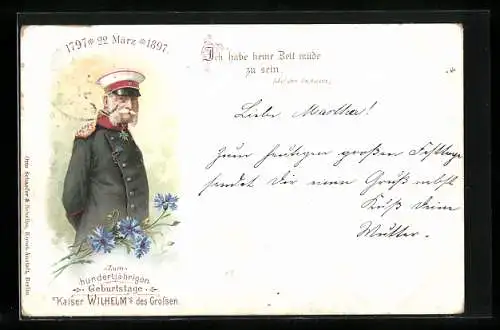 1797 22 März 1897.
Ich habe keine Zeit müde
zu sein.
Liebe Martha!
Zum heutigen großen Festtage
sendet Dir einen Gruß nebst
Kuß Deine
Mutter.
Zum
hundertjährigen
Geburtstage
Kaiser WILHELM's des Großen.